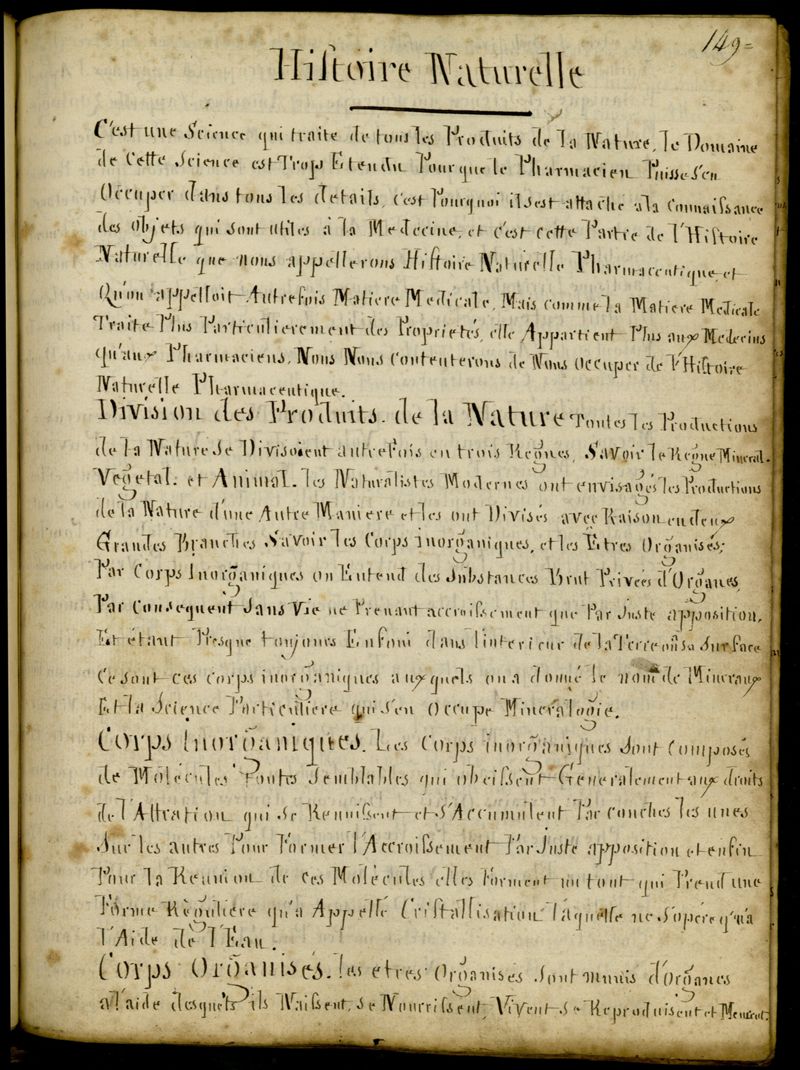 149=
Histoire Naturelle
C'est une Science qui traite de tous les Produits de la Nature, le Domaine
de Cette Science est Trop Etendu Pour que le Pharmacien Puisse s'en
Occuper dans tous les details, c'est Pourquoi il s'est attaché a la Connaissance
des objets qui sont utiles à la Medecine, et c'est cette Partie de l'Histoire
Naturelle que nous appellerons Histoire Naturelle Pharmaceutique, et
Qu'on appelloit Autrefois Matiere Medicale, Mais comme la Matiere Medicale
Traite Plus Particulierement des Proprietés, elle Appartient Plus aux Medecins
qu'aux Pharmaciens, Nous Nous Contenterons de Nous Occuper de l'Histoire
Naturelle Pharmaceutique.
Division des Produits de la Nature Toutes les Productions
de la Nature se Divisoient autrefois en trois Regnes, Savoir le Regne Mineral.
Vegetal. et Animal. les Naturalistes Modernes ont envisagés les Productions
de la Nature d'une Autre Maniere et les ont Divisés avec Raison en deux
Grandes Branches Savoir les Corps inorganiques, et les Etres Organisés;
Par Corps Inorganiques on Entend des Substances Brut Privées d'Organes,
Par Consequent Sans Vie ne Prenant accroissement que Par Juste apposition,
Et étant Presque toujours Enfoui dans l'interieur de la Terre ou sa Surface
Ce sont ces Corps inorganiques auxquels on a donné le nom de Mineraux
Et la Science Particuliere qui s'en Occupe Mineralogie.
Corps Inorganiques. Les Corps inorganiques Sont Composés
de Molécules Toutes Semblables qui obeissent Generalement aux droits
de l'Attration qui se Reunissent et S'Accumulent Par Couches les unes
Sur les autres Pour Former l'Accroissement Par Juste apposition et enfin
Pour la Reunion de ces Molécules elles Forment un tout qui Prend une
Forme Réguliére qu'a Appellé Cristallisation laquelle ne s'opére qu'à
l'Aide de l'Eau.
Corps Organisés. les etres Organisés Sont munis d'Organes
a l'aide desquels ils Naissent, se Nourrissent, Vivent Se Reproduisent et Meurent.